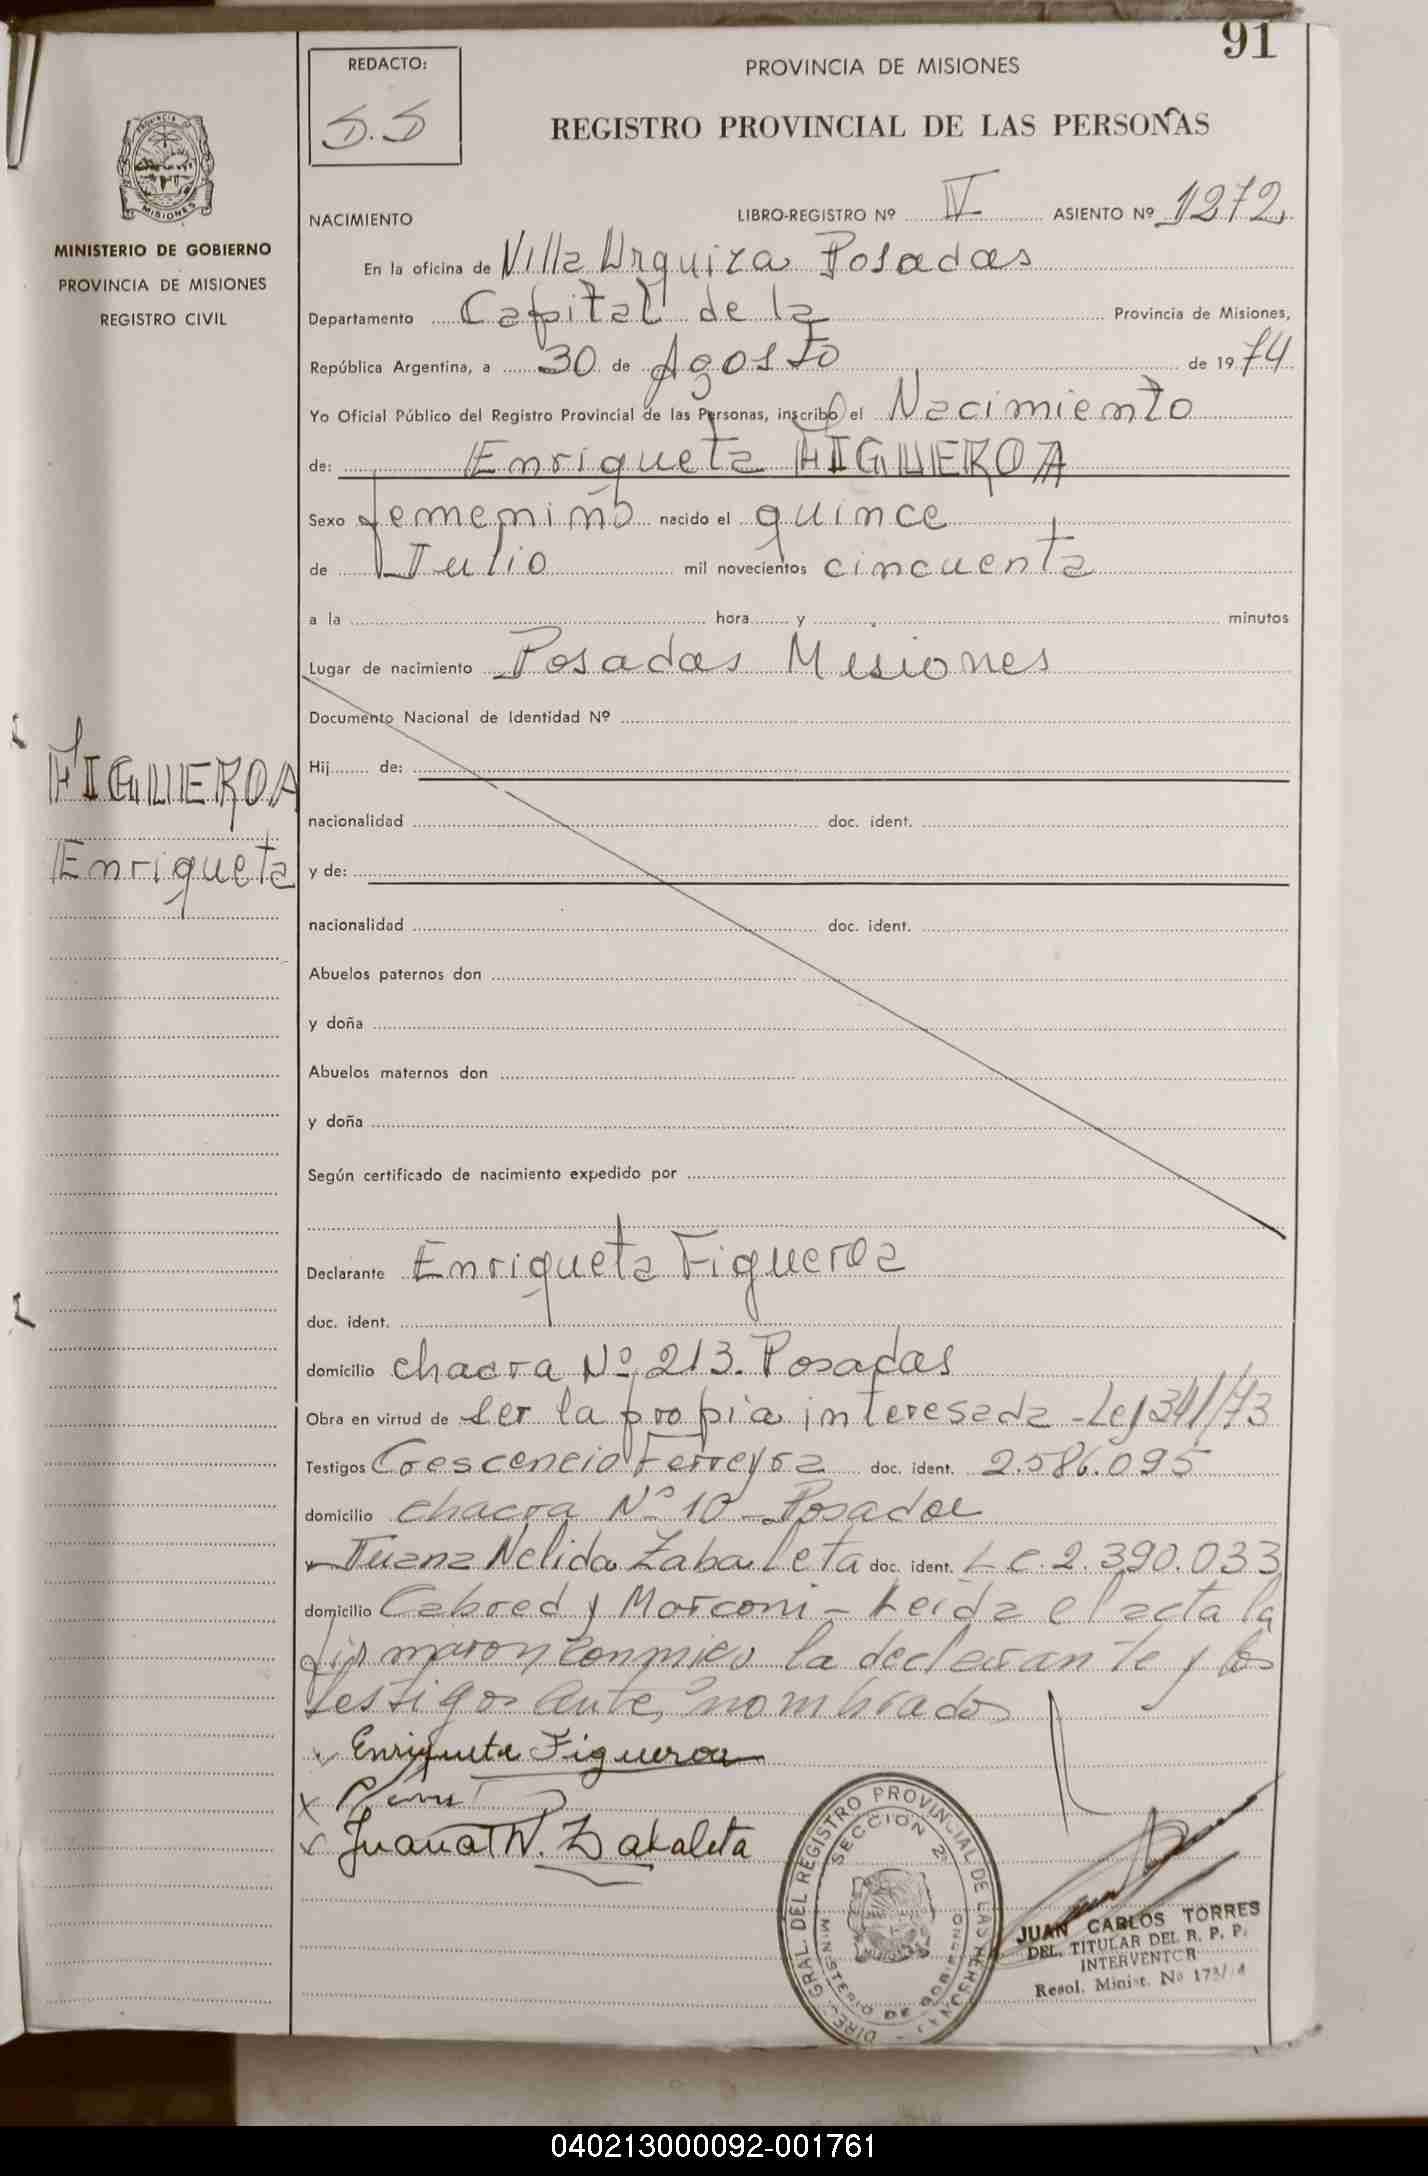 91
REDACTO:
S.S
PROVINCIA DE MISIONES
REGISTRO PROVINCIAL DE LAS PERSONAS
PROVINCIA DE
MISIONES
MINISTERIO DE GOBIERNO
PROVINCIA DE MISIONES
REGISTRO CIVIL
NACIMIENTO LIBRO-REGISTRO Nº IV ASIENTO Nº 1272
En la oficina de Villa Urquiza Posadas
Departamento Capital de la Provincia de Misiones,
República Argentina, a 30 de Agosto de 1974
Yo Oficial Público del Registro Provincial de las Personas, inscribo el Nacimiento
de: Enriqueta FIGUEROA
Sexo femenino nacido el quince
de Julio mil novecientos cincuenta
a la hora y minutos
Lugar de nacimiento Posadas Misiones
Documento Nacional de Identidad Nº
FIGUEROA
Enriqueta
Hij de:
nacionalidad doc. ident.
y de:
nacionalidad doc. ident.
Abuelos paternos don
y doña
Abuelos maternos don
y doña
Según certificado de nacimiento expedido por
Declarante Enriqueta Figueroa
doc. ident.
domicilio chacra Nº 213. Posadas
Obra en virtud de ser la propia interesada - Ley 341/73
Testigos Crescencio Ferreyra doc. ident. 2.586.095
domicilio chacra Nº 10 - Posadas
Juana Nelida Zabaleta doc. ident. L.C. 2.390.033
domicilio Cabred y Marconi - Leida el acta la
firmaron conmigo la declarante y los
testigos ante, nombrados
Enriqueta Figueroa
Juana N. Zabaleta
DIREC. GRAL. DEL REGISTRO PROVINCIAL DE LAS PERSONAS
SECCION 2ª
MINISTERIO DE GOBIERNO
JUAN CARLOS TORRES
DEL. TITULAR DEL R. P. P.
INTERVENTOR
Resol. Minist. Nº
040213000092-001761